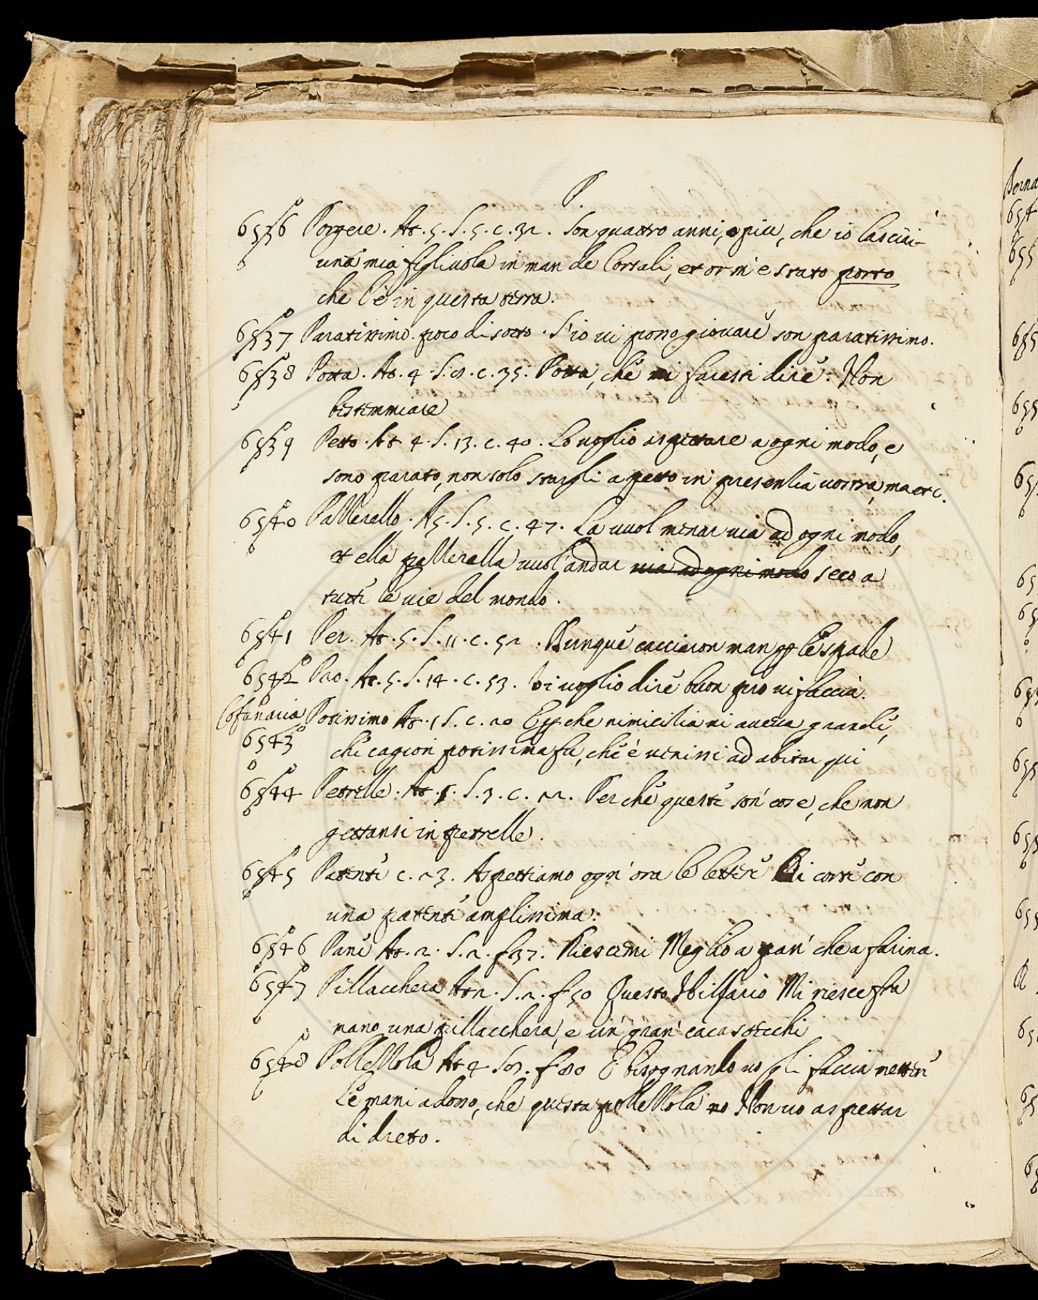 P.
6536 Porgere. At. 5. S. 5. c. 32. Son quattro anni, e piu, che io lasciai
una mia figliuola in man de Corsali, et or m'è stato porto
che l'è in questa terra.
6537 Paratissimo. poco di sotto. S'io vi posso giovare son paratissimo.
6538 Potta. At. 4. S. 9. c. 35. Potta, che mi faresti dire. Non
bistemmiare
6539 Petto. At. 4. S. 13. c. 40. Lo voglio aspettare a ogni modo, e
sono parato, non solo a petto in presentia vostra, ma etc.
6540 Pazzerello. At. 5. S. 5. c. 47. La vuol menar via ad ogni modo,
et ella pazzerella vuol andar via ad ogni modo seco a
tutte le vie del mondo.
6541 Per. At. 5. S. 11. c. 52. Dunque cacciaron man per le spade
6542 Pro. At. 5. S. 14. c. 53. Vi voglio dire buon pro vi faccia.
Cofanaria Potissimo At. 1 S. c. 20 Ec. che nimicitia vi aveva grande,
6543 che cagion potissima fu, che è venissi ad abitar qui
6544 Petrelle. At. 1. S. 3. c. 22. Perche queste son cose, che non
gettansi in petrelle.
6545 Patente c. 23. Aspettiamo ogn'ora le lettere Di corte con
una patente amplissima.
6546 Pane At. 2. S. 2. f 37. Riescimi Meglio a pan' che a farina.
6547 Pillacchera At 2. S. 2. f 50 Questo Ilario Mi riesce fra
mano una pillacchera, e un' gran' cacastecchi
6548 At 4 f 80 E bisognando vo gli faccia mettere
Le mani adosso, che questa no Non vo aspettar
di dreto.